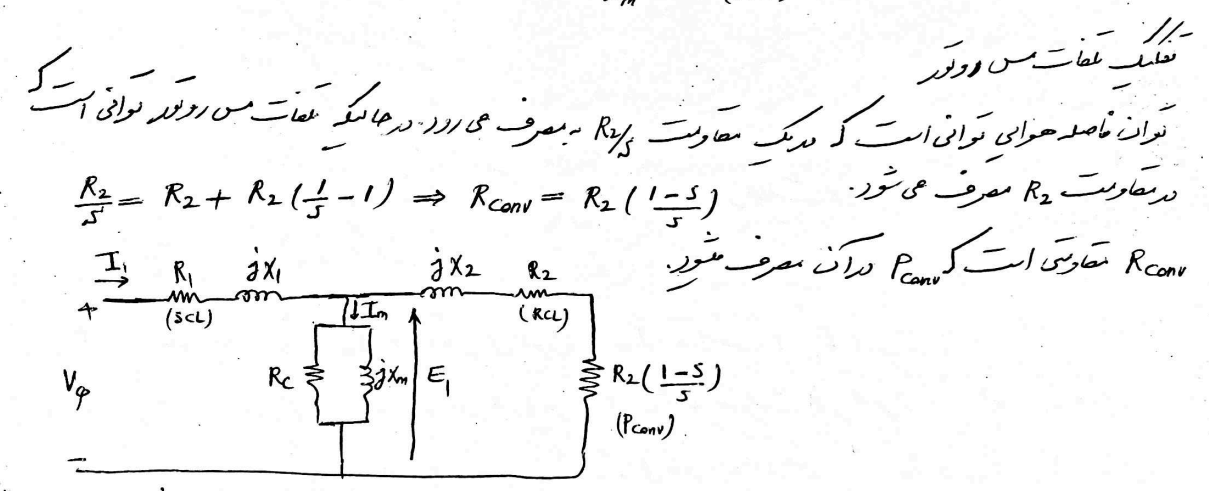 تفکیک تلفات مس روتور
توان فاصله هوایی توانی است که در یک مقاومت R2/s به مصرف می رود. در حالیکه تلفات مس روتور توانی است که
در مقاومت R2 مصرف می شود.
R2/s = R2 + R2 (1/s - 1) ⇒ Rconv = R2 (1-s/s)
Rconv مقاومتی است که Pconv در آن مصرف میشود.
I1 R1 jX1 jX2 R2
+ (SCL) Im (RCL)
Vφ RC jXm E1 R2 (1-s/s)
(Pconv)
-